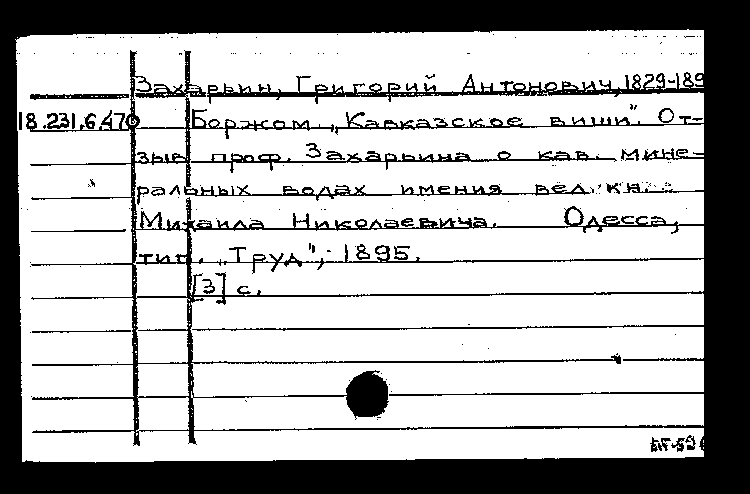 Захарьин, Григорий Антонович, 1829-189
18.231.6.470 Боржом „Кавказское виши“. От-
зыв проф. Захарьина о кав. мине-
ральных водах имения вел. кн.
Михаила Николаевича. Одесса,
тип. „Труд“, 1895.
[3] с.